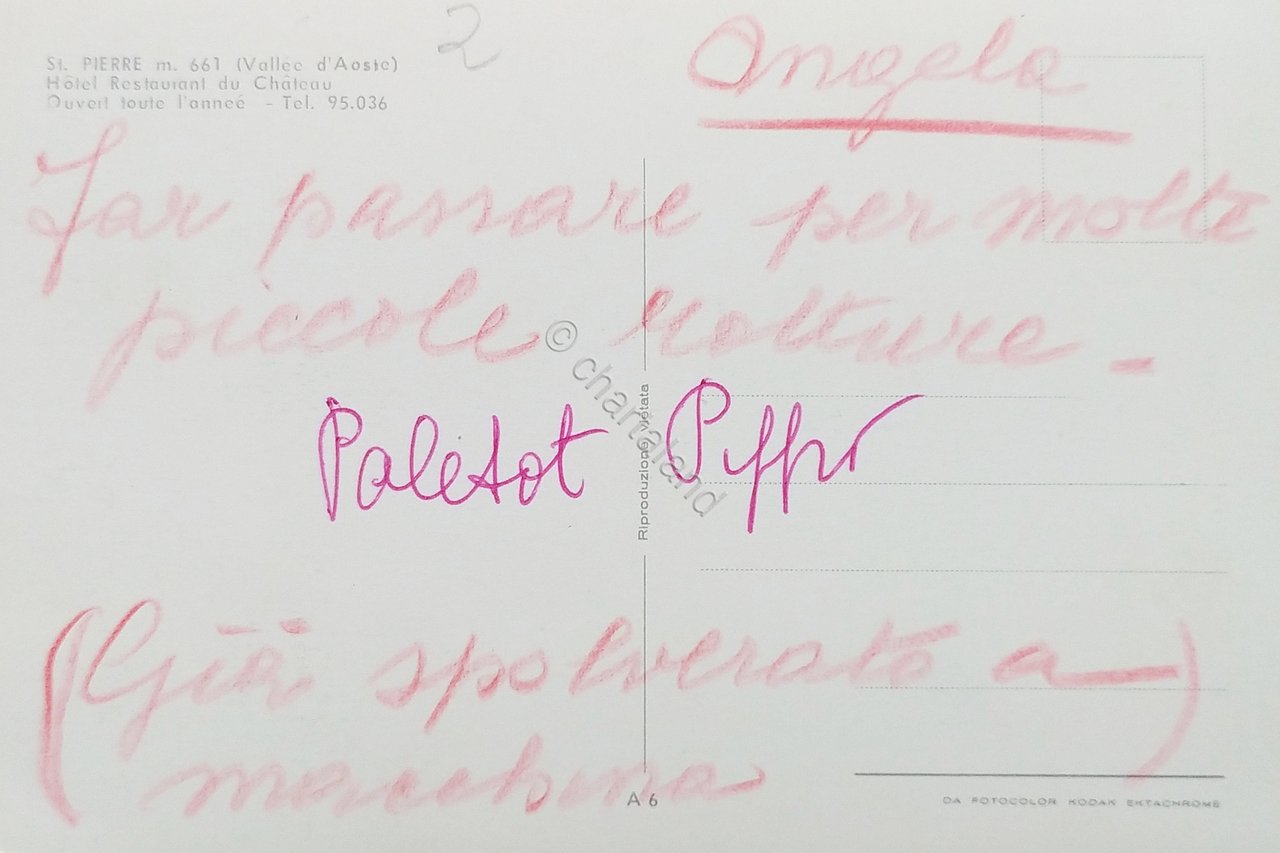 2
St. PIERRE m. 661 (Vallée d'Aoste)
Hôtel Restaurant du Château
Ouvert toute l'anneé - Tel. 95.036
Angela
Far passare per molte
piccole rotture -
Paletot
(Già spolverato a
macchina)
Riproduzione vietata
A 6
DA FOTOCOLOR KODAK EKTACHROME
© chartaland